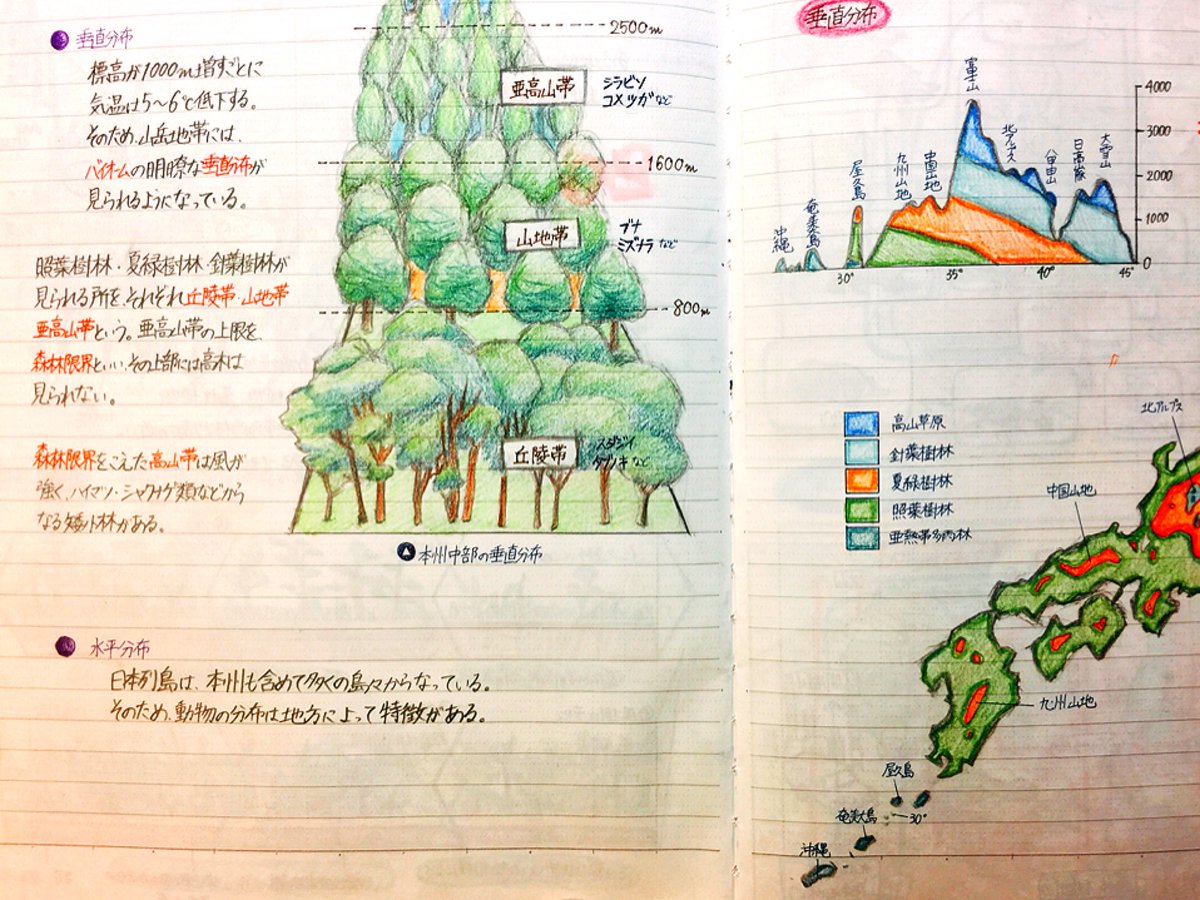 垂直分布
標高が1000m増すごとに
気温は5~6℃低下する。
そのため、山岳地帯には、
バイオームの明瞭な垂直分布が
見られるようになっている。
照葉樹林・夏緑樹林・針葉樹林が
見られる所を、それぞれ丘陵帯・山地帯
亜高山帯という。亜高山帯の上限を、
森林限界といい、その上部には高木は
見られない。
森林限界をこえた高山帯は風が
強く、ハイマツ・シャクナゲ類などから
なる矮小林がある。
2500m
亜高山帯
シラビソ
コメツガなど
1600m
山地帯
ブナ
ミズナラ など
800m
丘陵帯
スダジイ
タブノキ など
本州中部の垂直分布
水平分布
日本列島は、本州も含めて多くの島々からなっている。
そのため、動物の分布は地方によって特徴がある。
垂直分布
沖縄
奄美大島
屋久島
九州山地
中国山地
富士山
北アルプス
八甲田山
日高山脈
大雪山
4000
3000
2000
1000
0
30°
35°
40°
45°
高山草原
針葉樹林
夏緑樹林
照葉樹林
亜熱帯多雨林
北アルプス
中国山地
九州山地
屋久島
30°
奄美大島
沖縄